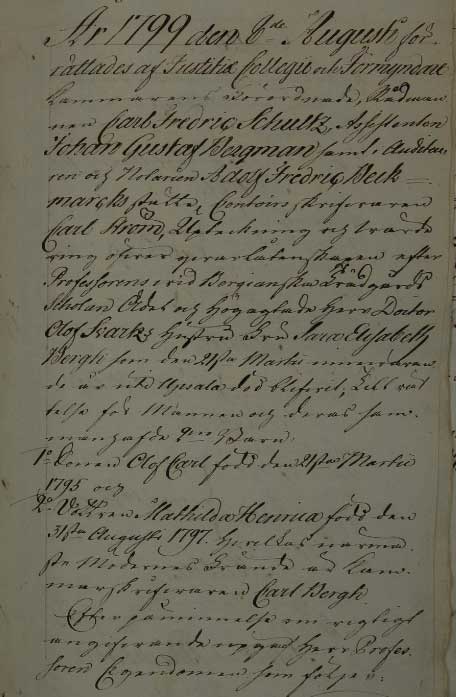 År 1799 den 6.de Augusti för-
rättades af Justitiæ Collegie och Förmyndare
Kammarens Förordnade, Rådman-
nen Carl Fredric Schultz, Assessoren
Johan Gustaf Bergman samt Auditeu-
ren och Notarien Adolf Fredric Beck-
marcks ställe, Contoirsskrifvaren
Carl Ström, Upteckning och värde
ring öfver qvarlåtenskapen efter
Professorens vid Bergianska Trädgårds
Scholan Ädel och Högaktade Herr Doctor
Olof Svartz Hustru Fru Sara Elisabeth
Bergh som den 21sta Martii innevaran
de år uti Upsala död blifvit, till rät
telse för Mannen och deras sam-
manhafde Barn:
1o Sonen Olof Carl född den 21sta Martii
1795 och
2o Dottren Mathilda Henrica född den
31sta Augusti 1797. Hvilkas närma
ste Moderne Frände är Kam-
marskrifvaren Carl Bergh
Efter påminnelse om rigtigt
angifvande upgaf Herr Profes-
soren Egendomen som följer: